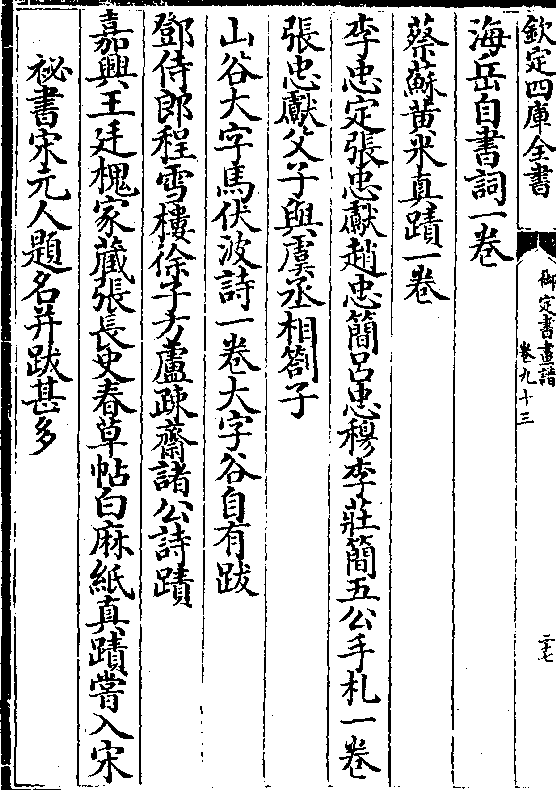 欽定四庫全書
御定書畫譜
卷九十三
二七
海岳自書詞一卷
蔡蘇黃米真蹟一卷
李忠定張忠獻趙忠簡呂忠穆李莊簡五公手札一卷
張忠獻父子與虞丞相劄子
山谷大字馬伏波詩一卷大字谷自有跋
鄧侍郎程雪樓徐子方盧疎齋諸公詩蹟
嘉興王廷槐家藏張長史春草帖白麻紙真蹟嘗入宋
祕書宋元人題名并跋甚多